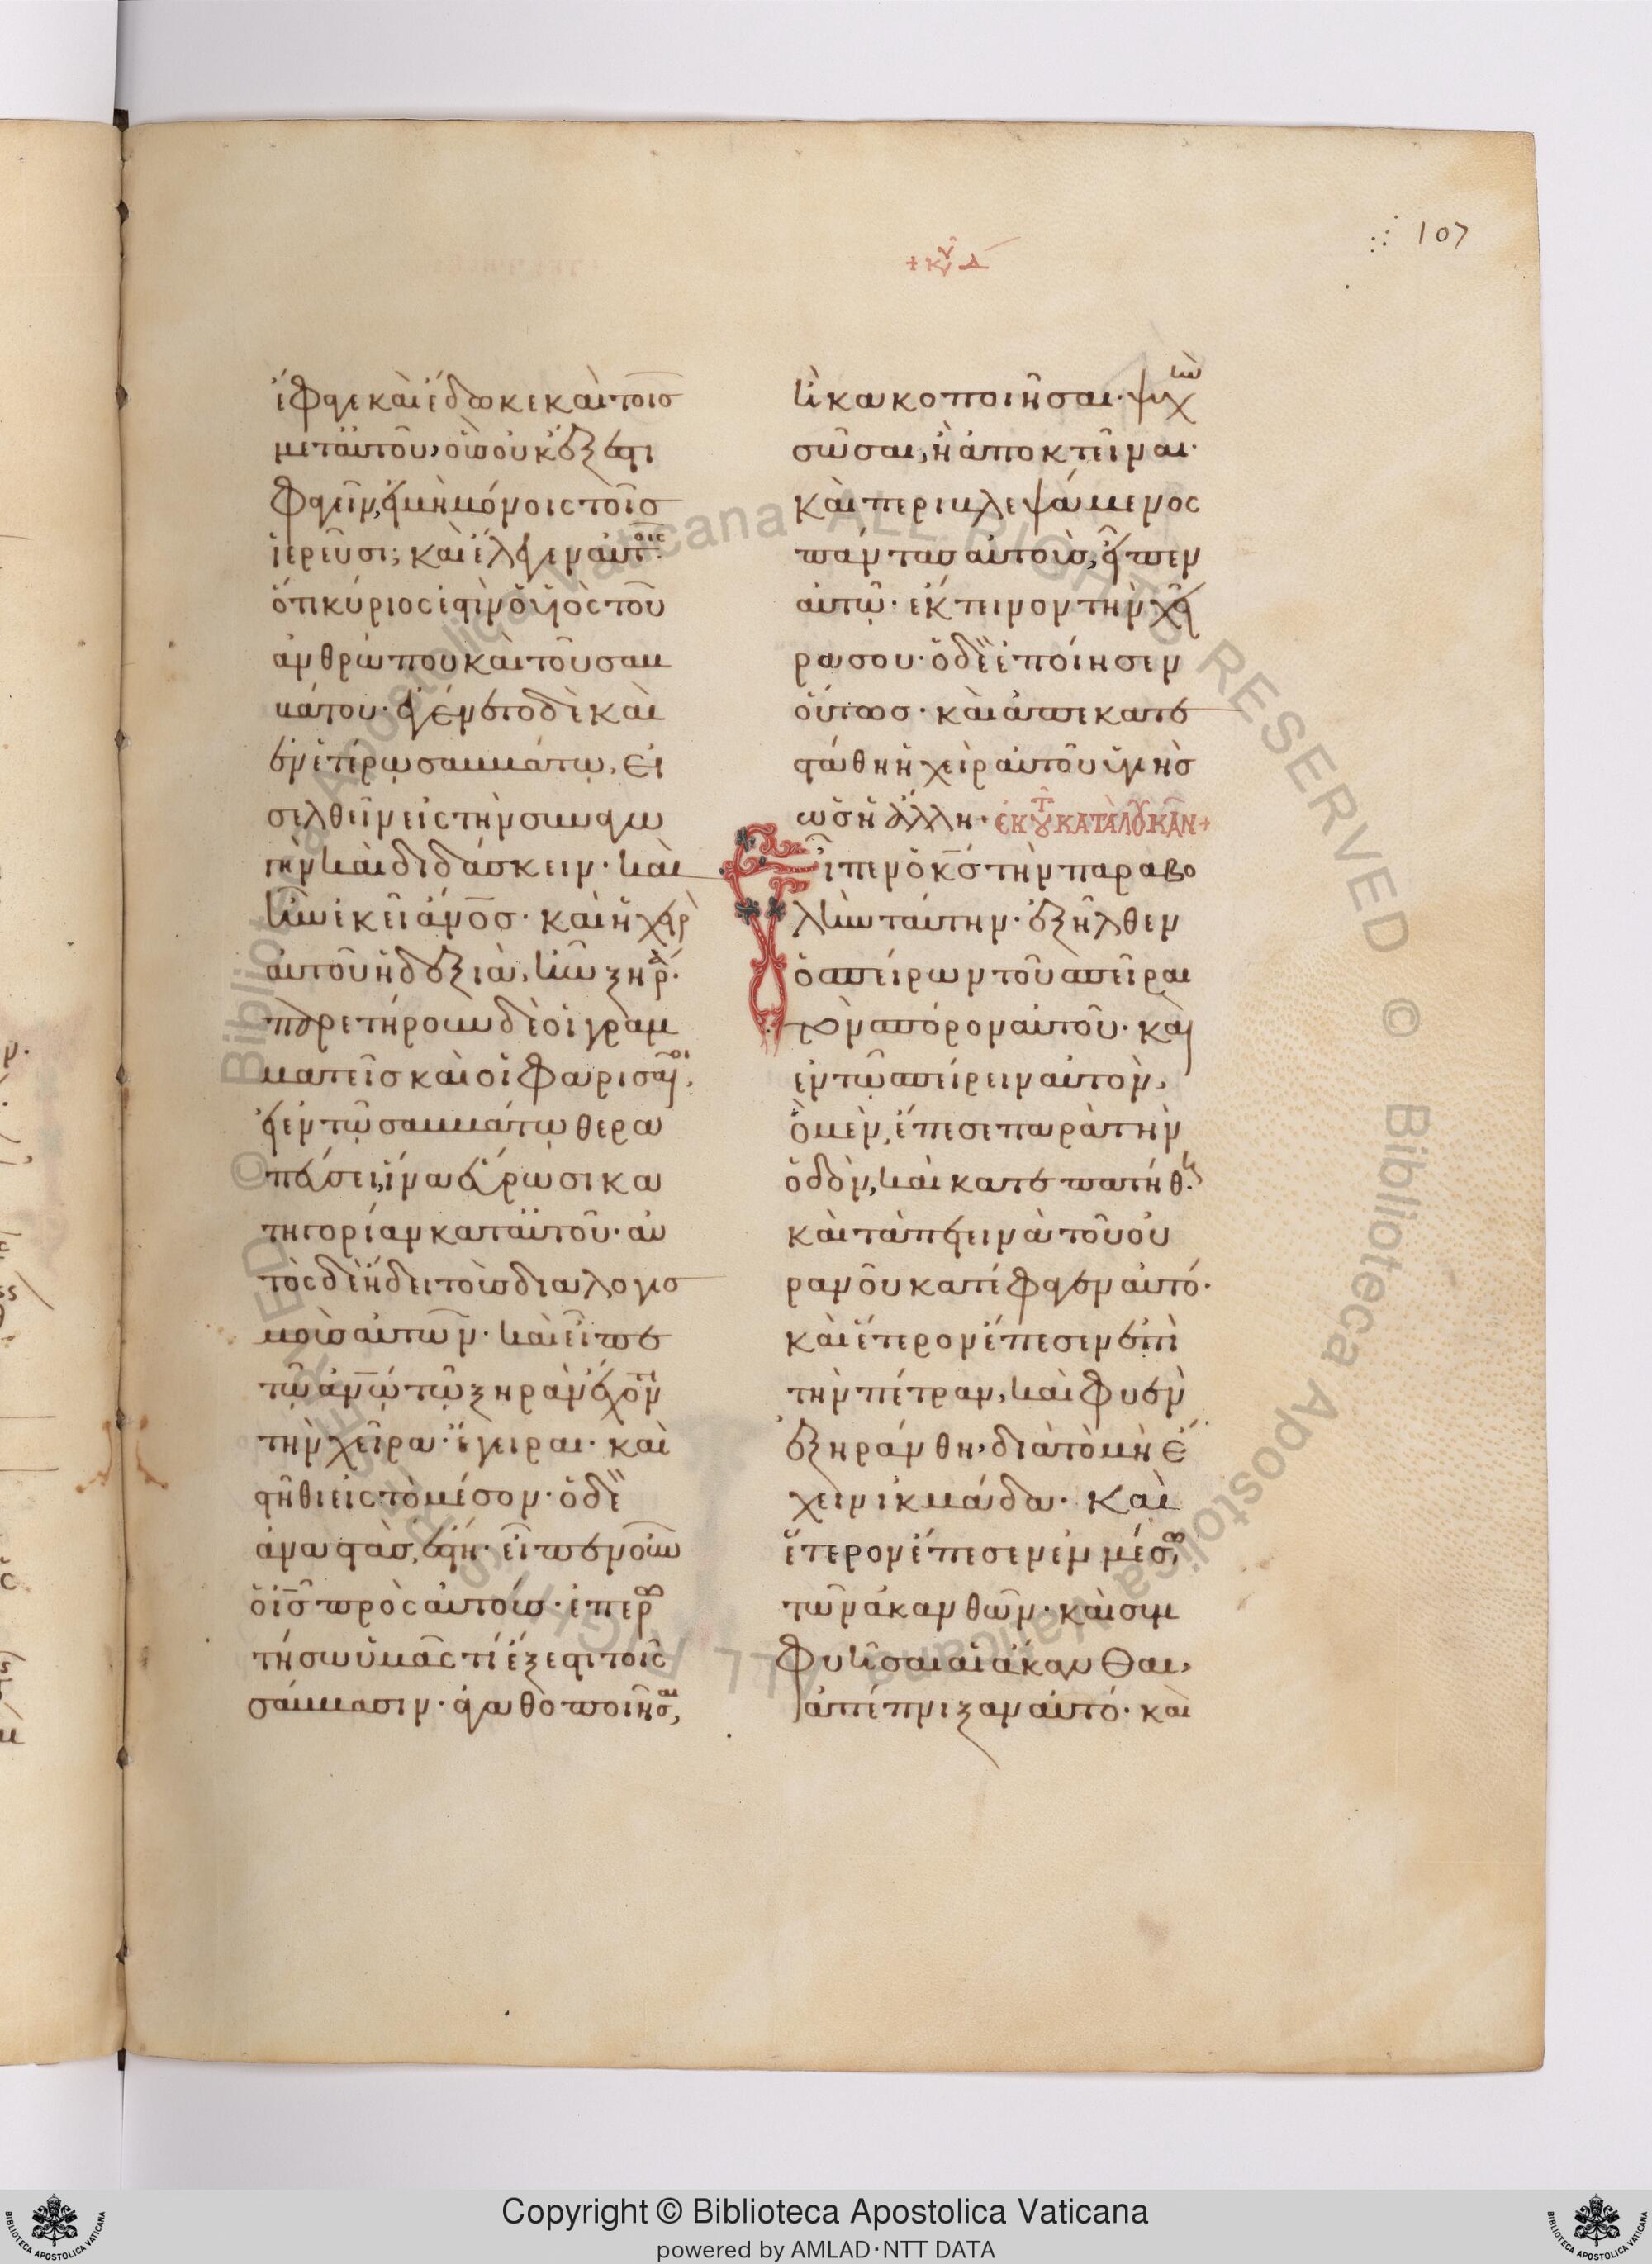 107
+ κυ Δ
ἔφαγε καὶ ἔδωκε καὶ τοῖσ
μετ αὐτοῦ, οὓσ οὐκ ἔξεστι
φαγεῖν, εἰ μὴ μόνοις τοῖσ
ἱερεῦσι; καὶ ἔλεγεν αὐτοῖς·
ὅτι κύριος ἐστὶν ὁ υἱὸς τοῦ
ἀνθρώπου καὶ τοῦ σαβ
βάτου· ἐγένετο δὲ καὶ
ἐν ἑτέρῳ σαββάτῳ, εἰ
σελθεῖν εἰς τὴν συναγω
γὴν καὶ διδάσκειν· καὶ
ἦν ἐκεῖ ἄνοσ· καὶ ἡ χεὶρ
αὐτοῦ ἡ δεξιὰ, ἦν ξηρά·
παρετήρουν δὲ οἱ γραμ
ματεῖσ καὶ οἱ φαρισαῖοι,
εἰ ἐν τῷ σαββάτῳ θερα
πεύσει, ἵνα εὕρωσι κα
τηγορίαν κατ αὐτοῦ· αὐ
τὸς δὲ ᾔδει τοὺσ διαλογισ
μοὺσ αὐτῶν· καὶ εἶπε
τῷ ἀνῷ τῷ ξηρὰν ἔχοντι
τὴν χεῖρα· ἔγειραι· καὶ
στῆθι εἰς τὸ μέσον· ὁ δὲ
ἀναστὰσ, ἔστη· εἶπεν οὖν
ὁ ισ πρὸς αὐτούσ· ἐπερω
τήσω ὑμᾶς τί ἔξεστι τοῖς
σάββασιν· ἀγαθοποιῆσαι,
ἢ κακοποιῆσαι· ψυχὴν
σῶσαι, ἢ ἀποκτεῖναι·
καὶ περιβλεψάμενος
πάντασ αὐτοὺσ, εἶπεν
αὐτῷ· ἔκτεινον τὴν χεῖ
ρα σου· ὁ δὲ ἐποίησεν
οὕτωσ· καὶ ἀπεκατε
στάθη ἡ χεὶρ αὐτοῦ ὑγιὴσ
ὡσ ἡ ἄλλη + ἐκ τοῦ κατὰ λουκᾶν +
Εἶπεν ὁ κσ τὴν παραβο
λὴν ταύτην· ἐξῆλθεν
ὁ σπείρων τοῦ σπεῖραι
τὸν σπόρον αὐτοῦ· καὶ
ἐν τῷ σπείρειν αὐτὸν,
ὃ μὲν, ἔπεσε παρὰ τὴν
ὁδὸν, καὶ κατεπατήθη·
καὶ τὰ πετεινὰ τοῦ οὐ
ρανοῦ κατέφαγεν αὐτό·
καὶ ἕτερον ἔπεσεν ἐπὶ
τὴν πέτραν, καὶ φυὲν
ἐξηράνθη, διὰ τὸ μὴ ἔ
χειν ἰκμάδα· καὶ
ἕτερον ἔπεσεν ἐν μέσῳ
τῶν ἀκανθῶν· καὶ συμ
φυεῖσαι αἱ ἄκανθαι,
ἀπέπνιξαν αὐτό· καὶ
© Biblioteca Apostolica Vaticana ALL RIGHTS RESERVED
© Biblioteca Apostolica Vaticana ALL RIGHTS RESERVED
Copyright © Biblioteca Apostolica Vaticana
powered by AMLAD·NTT DATA
BIBLIOTECA APOSTOLICA VATICANA
BIBLIOTECA APOSTOLICA VATICANA